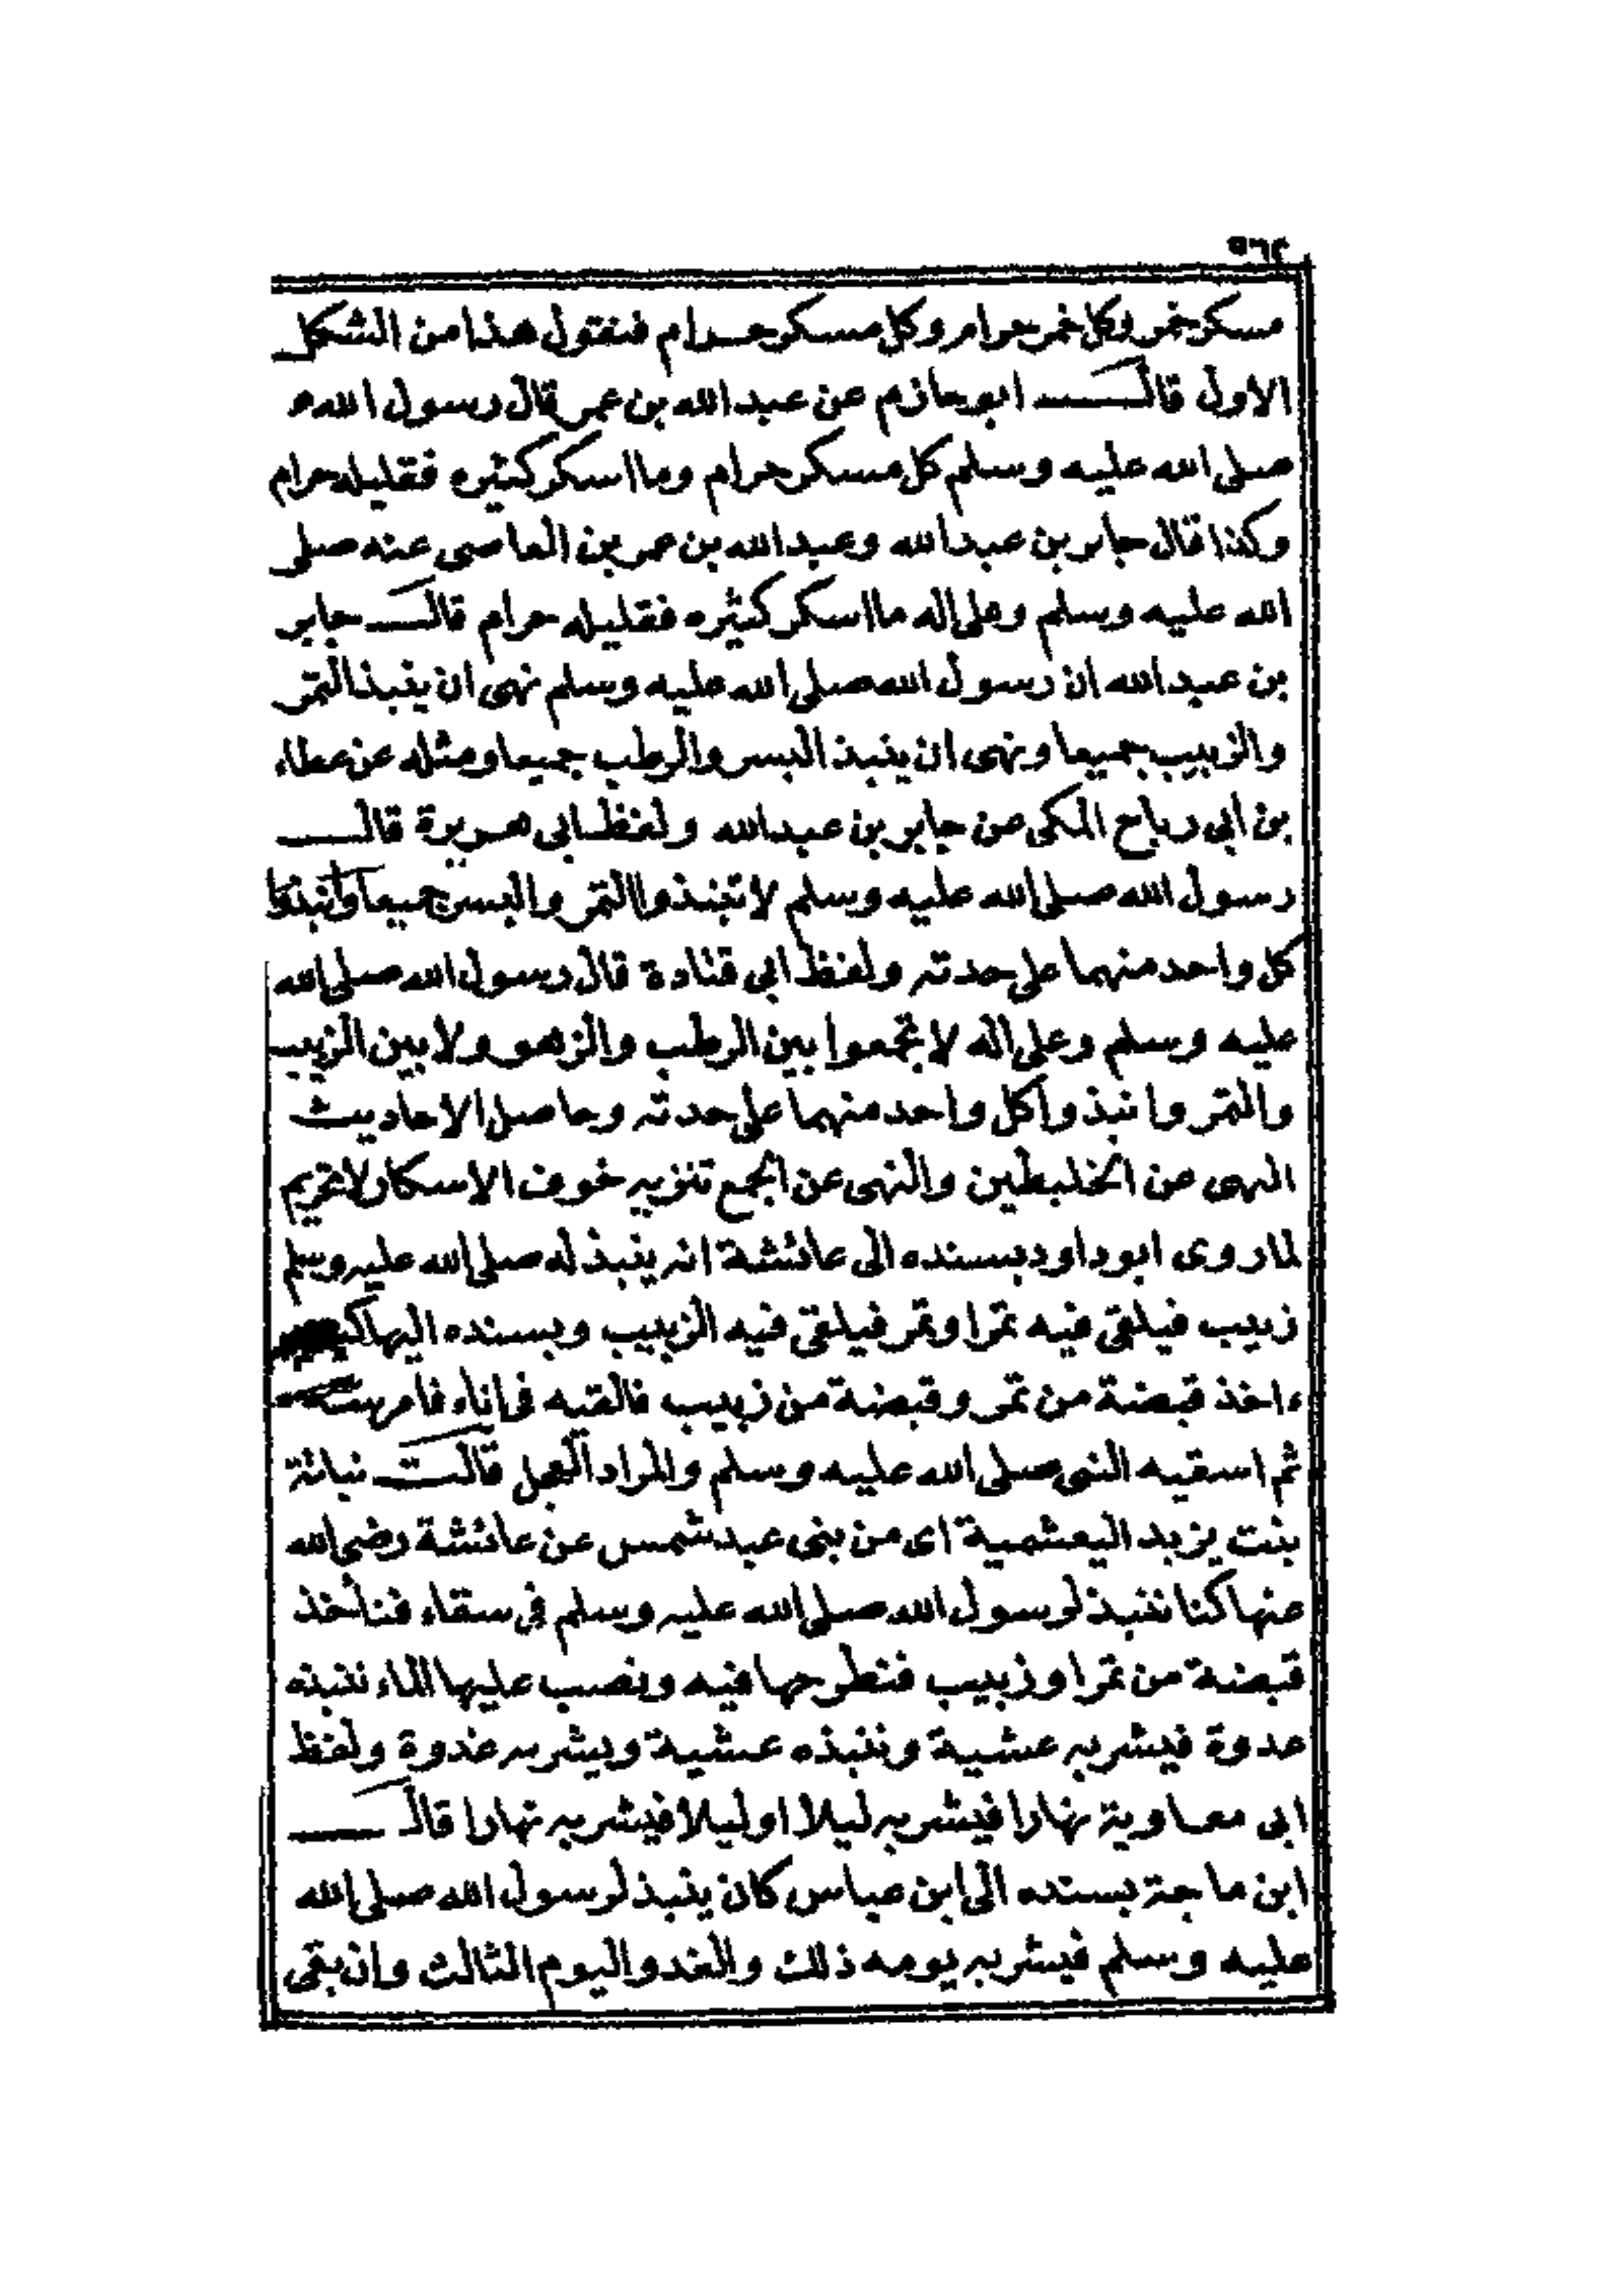 ٥٦٢
مسكر خمر وكل خمر حرام وكل مسكر حرام فنقول هذا من الشكل
الاول قال ابو حازم عن عبد الله بن عمر قال رسول الله
صلى الله عليه وسلم كل مسكر حرام وما اسكر كثيره فقليله حرام
وكذا قال جابر بن عبد الله وعبد الله بن عمر بن العاصى عنه صلى
الله عليه وسلم وعلى اله ما اسكر كثيره فقليله حرام قال جابر
بن عبد الله ان رسول الله صلى الله عليه وسلم نهى ان ينبذ التمر
والزبيب جميعا ونهى ان ينبذ البسر والرطب جميعا ومثله عن عطاء
بن ابى رباح المكى عن جابر بن عبد الله ولفظ ابى هريرة قال
رسول الله صلى الله عليه وسلم لا تنبذوا التمر والبسر جميعا وانبذوا
كل واحد منهما على حدته ولفظ ابى قتادة قال رسول الله صلى الله
عليه وسلم وعلى اله لا تجمعوا بين الرطب والزهو ولا بين الزبيب
والتمر وانبذوا كل واحد منهما على حدته وحاصل الاحاديث
النهى عن الخليطين والنهى عن الجمع تنزيه خوف الاسكار لا تحريم
لما روى ابو داود بسنده الى عائشة انه ينبذ له صلى الله عليه وسلم
زبيب فيلقى فيه تمرا وتمر فيلقى فيه الزبيب وبسنده اليها
ءاخذ قبضة من تمر وقبضة من زبيب فالقيه فى اناء فامرسه
ثم اسقيه النبى صلى الله عليه وسلم والمراد قالت نباتة
بنت يزيد اليعشمية اى من بنى عبد شمس عن عائشة رضى الله
عنها كنا ننبذ لرسول الله صلى الله عليه وسلم فى سقاء فنأخذ
قبضة من تمر او زبيب فنطرحها فيه ونصب عليها الماء ننبذه
عدوة فيشربه عشية وننبذه عشية ويشربه غدوة ولفظ
ابى معاوية نهارا فيشربه ليلا او ليلا فيشربه نهارا قال
ابن ماجة بسنده الى ابن عباس كان ينبذ لرسول الله صلى الله
عليه وسلم فيشربه يومه ذلك والغد واليوم الثالث وان بقى